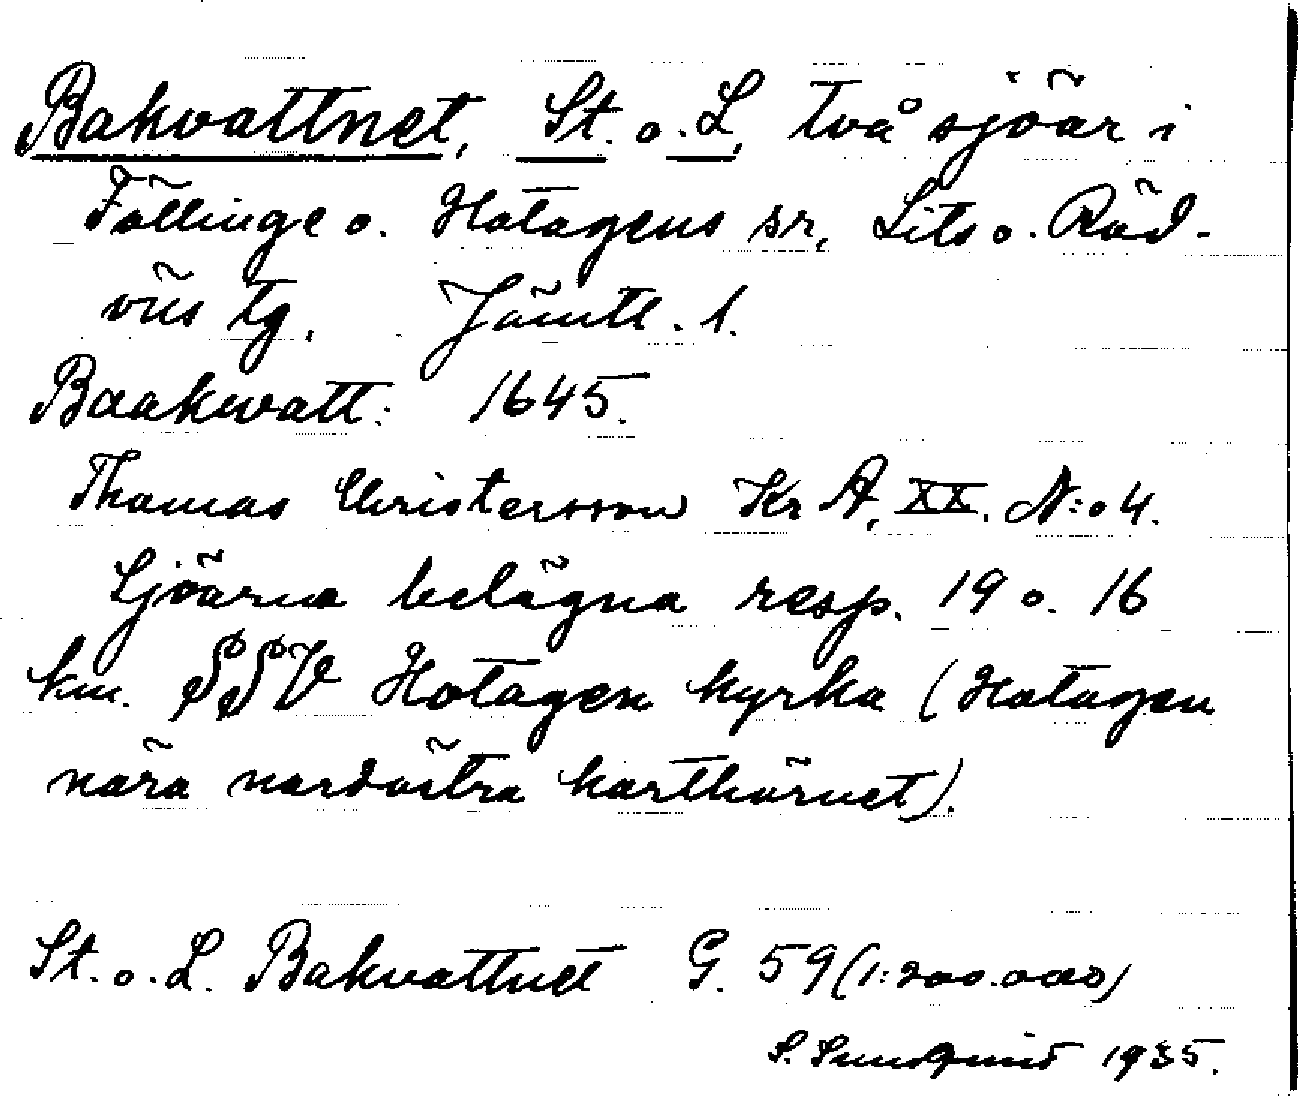 Bakvattnet, St. o. L, två sjöar i
Föllinge o. Hotagens sr, Lits o. Röd-
öns tg. Jämtl. l.
Baakwatt: 1645.
Thomas Christersson Kr A, XX. N:o 4.
Sjöarna belägna resp. 19 o. 16
km. SSV Hotagen kyrka (Hotagen
nära nordöstra karthörnet).
St. o. L. Bakvattnet G. 59 (1:200.000)
S. Sundqvist 1935.